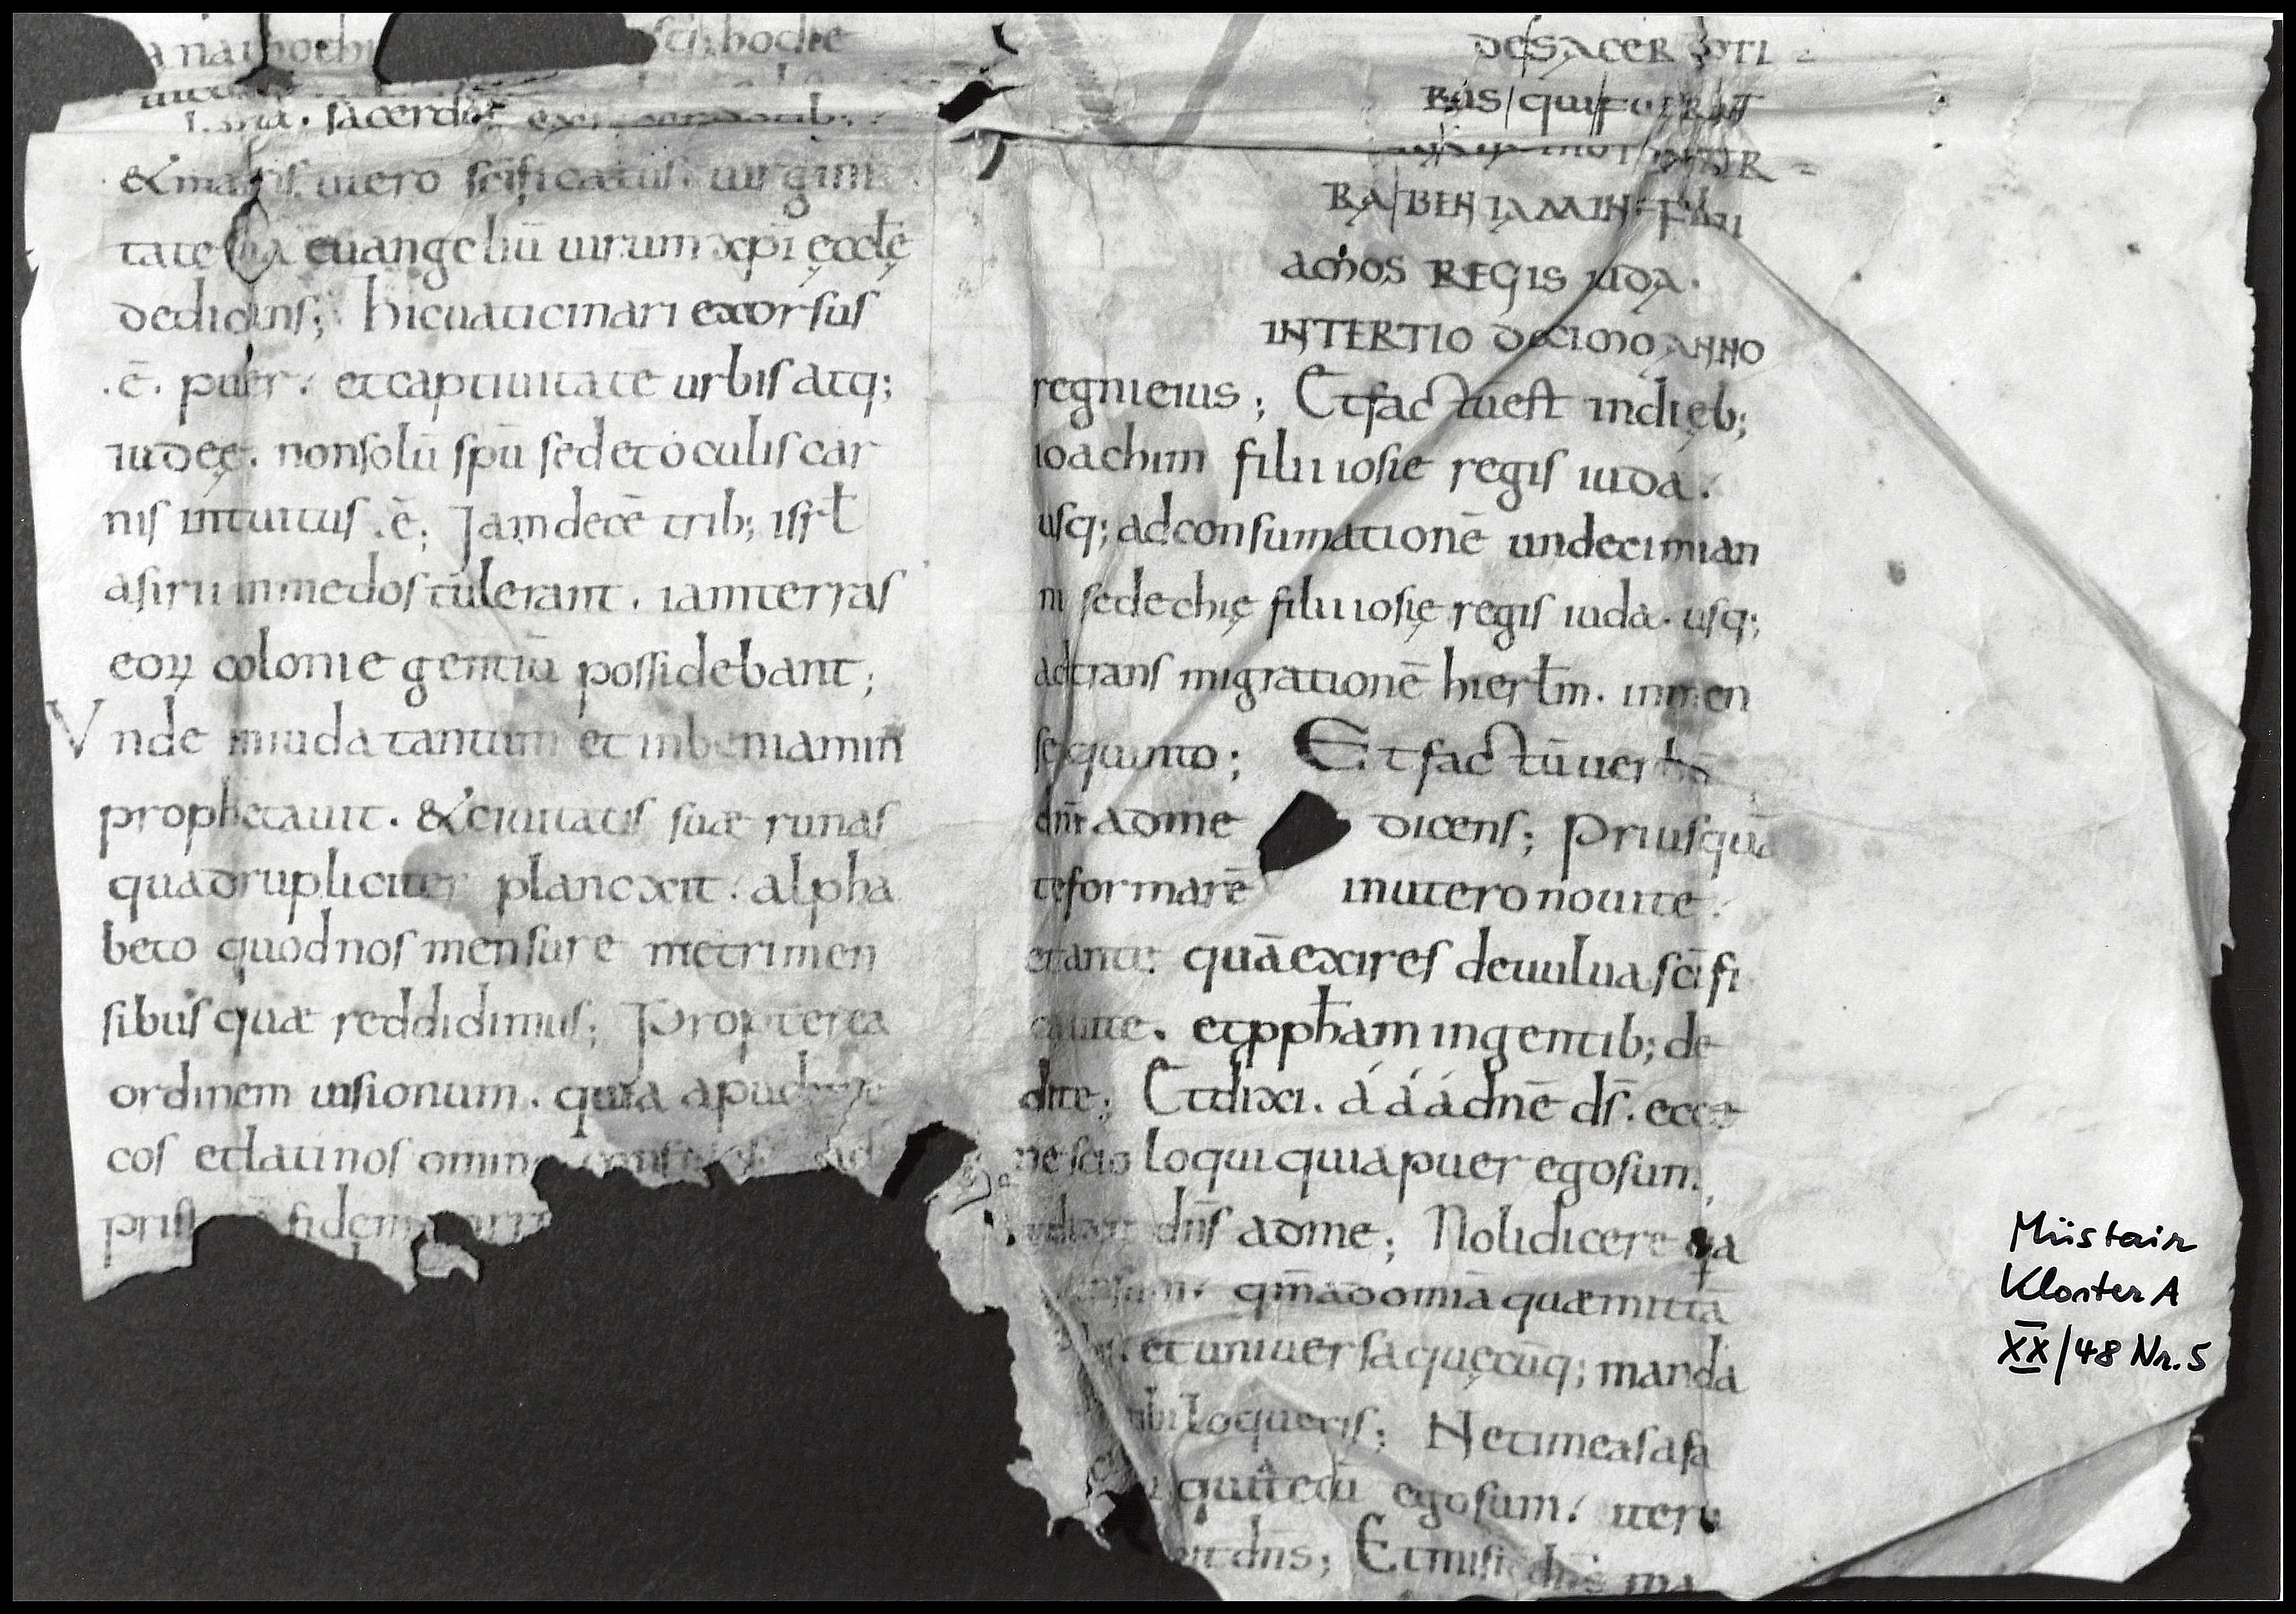 sci; hodie
sacerdos ex sacerdotib;
& matris utero scificatus. uirgini
tate sua euangeliū uirum xp̄i ecclę
dedicans; hic uaticinari exorsus
.ē. puer. et captiuitatē urbis atq;
iudeę. non solū spū sed et oculis car
nis intuitus .ē; Jam decē trib; isrł
asirii in medos tulerant. iam terras
eoꝝ colonie gentiū possidebant;
Vnde in iuda tantum et in beniamin
prophetauit. & ciuitatis suæ ruinas
quadrupliciter planxit. alpha
beto quod nos mensure metri uien
sibus quæ reddidimus; Propterea
ordinem uisionum. quia apud
cos et latinos omin
prist fidem
DE SACERDOTI
BUS QUI FUERUNT
RA BENJAMIN FILII
AMOS REGIS IUDA.
IN TERTIO DECIMO ANNO
regni eius; Et factū est in dieb;
ioachim filii iosie regis iuda.
usq; ad consumationē undecimi an
ni sedechię filii iosię regis iuda. usq;
ad trans migrationē hierłm. in men
se quinto; Et factū uerbū
dn̄i ad me dicens; Priusquā
te formarē in utero noui te.
et ante quā exires de uulua sc̄ifi
caui te. et ppham in gentib; de
di te; Et dixi. á á á dnē ds̄. ecce
nescio loqui quia puer ego sum.
dn̄s ad me; Noli dicere quia
sum. qm̄ ad omīa quæ mittā
et uniuersa quęcūq; manda
tibi loqueris; Ne timeas a fa
quia tecū ego sum. ut eru
dn̄s; Et misit dn̄s ma
Müstair
Kloster A
XX/48 Nr. 5